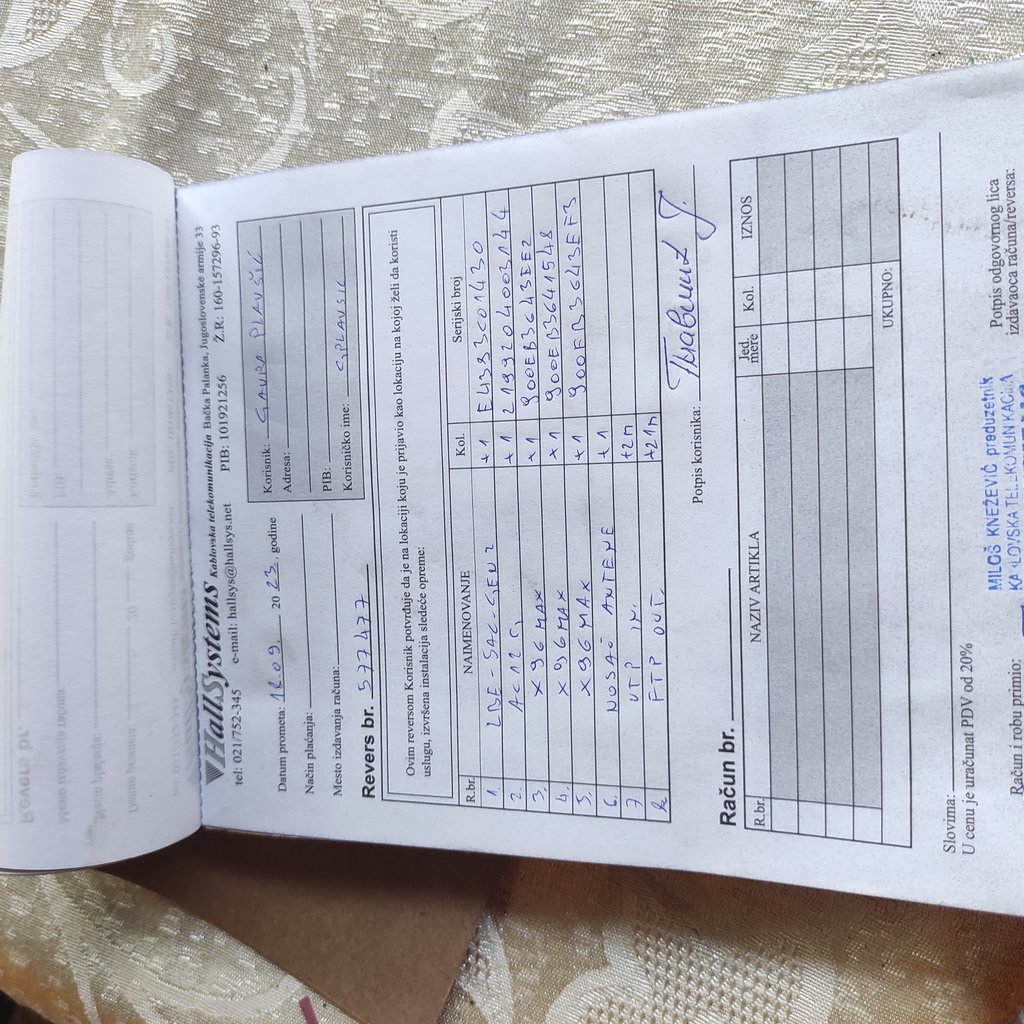 HallSystems Kablovska telekomunikacija Bačka Palanka, Jugoslovenske armije 33
tel: 021/752-345 e-mail: hallsys@hallsys.net PIB: 101921256 Ž.R.: 160-157296-93
Datum prometa: 16.09. 20 23. godine
Način plaćanja:
Mesto izdavanja računa:
Korisnik: GAVRA PLAVŠIĆ
Adresa:
PIB:
Korisničko ime: GPLAVSIC
Revers br. 577477
Ovim reversom Korisnik potvrđuje da je na lokaciji koju je prijavio kao lokaciju na kojoj želi da koristi
uslugu, izvršena instalacija sledeće opreme:
R.br. NAIMENOVANJE Kol. Serijski broj
1. LBE-5AC-GEN2 +1 E4383C01430
2. AC12G +1 2199204003144
3. X96MAX +1 900EB3C43DE2
4. X96MAX +1 900EB3641548
5. X96MAX +1 900EB3643EF3
6. NOSAČ ANTENE +1
7. UTP IN. +2m
8 FTP OUT. +21m
Potpis korisnika:
Račun br.
R.br. NAZIV ARTIKLA Jed. mere Kol. IZNOS
UKUPNO:
Slovima:
U cenu je uračunat PDV od 20%
Račun i robu primio:
MILOŠ KNEŽEVIĆ preduzetnik
KABLOVSKA TELEKOMUNIKACIJA
Potpis odgovornog lica
izdavaoca računa/reversa: